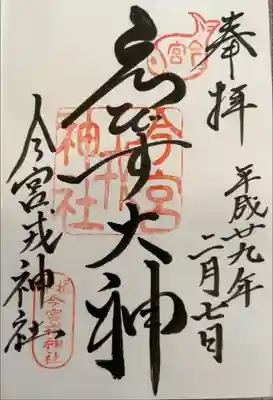 奉拝
平成廿九年
二月七日
えびす大神
今宮戎神社
今宮
今宮
戎
神社
今宮戎神社